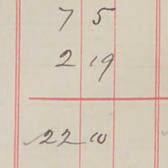 7 5
2 19
22 10